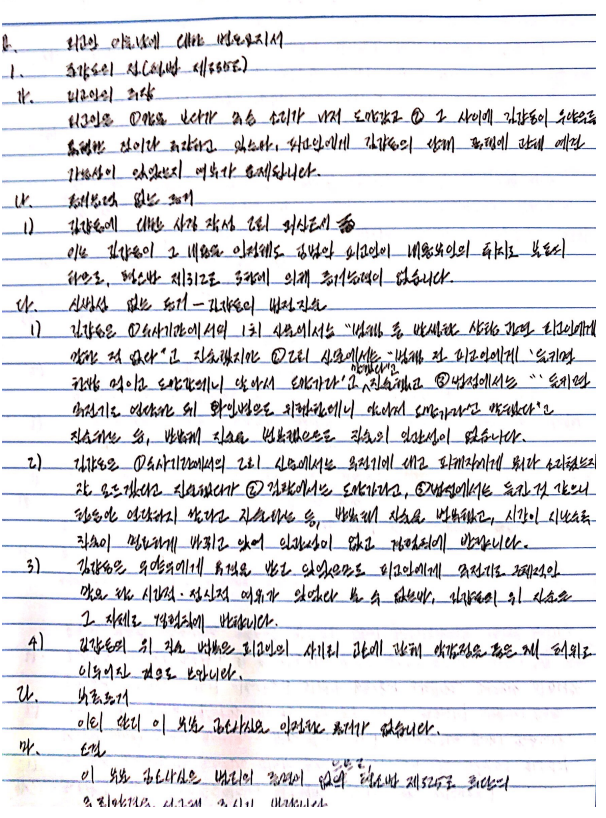 피고인 이을남에 대한 변론요지서
1. 준강도의 점(형법 제335조)
가. 피고인의 주장
피고인은 ①망을 보다가 호송 소리가 나서 도망갔고 ② 그 사이에 김갑동이 우발적으로
폭행한 것이라 주장하고 있는바, 피고인에게 김갑동의 상해 폭행에 관해 예견
가능성이 있었는지 여부가 문제됩니다.
나. 증거능력 없는 증거
1) 김갑동에 대한 사경 작성 2회 피신조서
이는 김갑동이 그 내용을 인정해도 공범인 피고인이 내용부인의 취지로 부동의
하므로, 형소법 제312조 3항에 의해 증거능력이 없습니다.
다. 신빙성 없는 증거 - 김갑동의 법정진술
1) 김갑동은 ①수사기관에서의 1회 신문에서는 "범행 중 발생할 상황 관련 피고인에게
말한 적 없다"고 진술했지만 ②2회 신문에서는 "범행 전 피고인에게 '들키면
한방 먹이고 도망갈테니 알아서 도망가라'고 말했다"고 진술했고 ③법정에서는 "'들키면
무전기로 연락한 뒤 확인법으로 위협할테니 알아서 도망가라'고 말했다"고
진술하는 등, 반복해 진술을 번복했으므로 진술의 일관성이 없습니다.
2) 김갑동은 ①수사기관에서의 2회 신문에서는 무전기에 대고 피해자에게 뭐라 소리쳤는지
잘 모르겠다고 진술했다가 ② 검찰에서는 도망가라고, ③법정에서는 들킨 것 같으니
한동안 연락하지 말라고 진술하는 등, 반복해 진술을 번복했고, 시간이 지날수록
진술이 명료하게 바뀌고 있어 일관성이 없고 경험칙에 반합니다.
3) 김갑동은 우연히에게 추격을 받고 있었으므로 피고인에게 무전기로 구체적인
말을 하는 시간적·정신적 여유가 있었다 볼 수 없는바, 김갑동의 위 진술은
그 자체로 경험칙에 반합니다.
4) 김갑동의 위 진술 번복은 피고인의 사기죄 고소에 관해 악감정을 품은 채 허위로
이루어진 것으로 보입니다.
라. 부족증거
이외 달리 이 부분 공소사실을 인정할 증거가 없습니다.
마. 소결
이 부분 공소사실은 범죄의 증명이 없으므로, 형소법 제325조 후단의